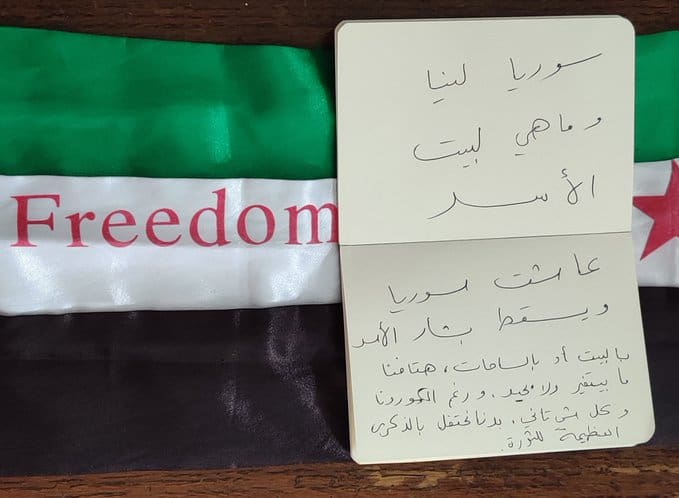 Freedom
سوريا لينا
وما هي لبيت
الأسد
عاشت سوريا
ويسقط بشار الأسد
بالبيت أو بالساحات، هتافنا
ما بيتغير ولا بحيد. ورغم الكورونا
وكل شي تاني، بدنا نحتفل بالذكرى
العظيمة للثورة.